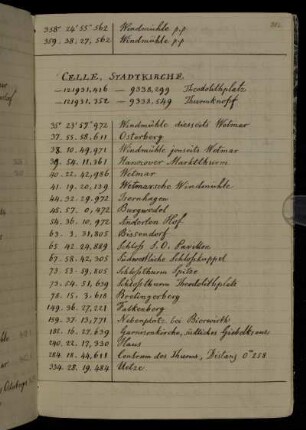 358. 24. 55, 562 Windmühle p.p
359. 38. 27, 562 Windmühle p.p
CELLE, STADTKIRCHE.
—121931,416 —9338,299 Theodolithplatz
—121931.352 —9338.549 Thurmknopf
35° 23' 57" 972 Windmühle diesseits Wetmar
37. 55. 58. 611 Osterberg
38. 10. 49. 971 Windmühle jenseits Wetmar
39. 54. 11. 361 Hannover Marktthurm
40. 22. 42, 986 Wetmar
41. 19. 20, 139 Wetmarsche Windmühle
44. 32. 29. 972 Isernhagen
45. 57. 0, 472 Burgwedel
54. 36. 10. 972 Hof
63. 3. 31, 805 Bissendorf
65. 42. 24, 889 Schloss S. O. Pavillon
67. 58. 42, 305 Südwestliche Schlosskuppel
73. 53. 19, 805 Schlossthurm Spitze
73. 54. 51, 639 Schlossthurm Theodolithplatz
78. 15. 3, 618 Brelingerberg
149. 36. 27, 221 Falkenberg
159. 37. 13, 771 Nebenplatz bei
182. 16. 27, 639 Garnisonkirche, südlicher
240. 22. 17, 930 Haus
284. 18. 44, 611 Centrum des Thurms, Distanz 0.258
334. 28. 19, 484 Uelze